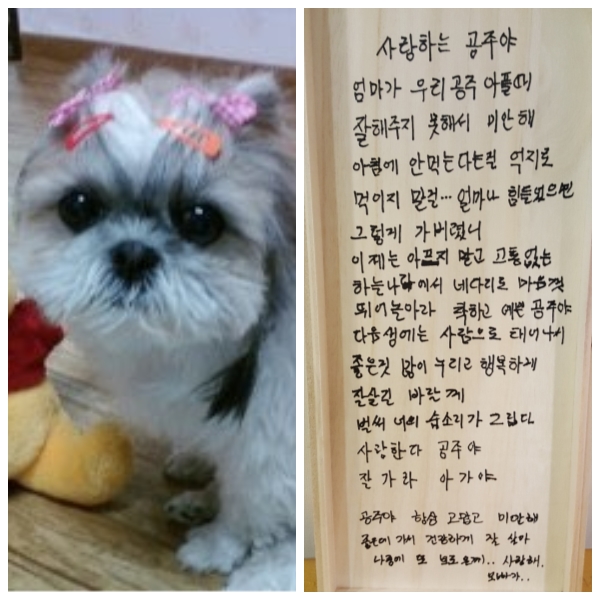 사랑하는 공주야
엄마가 우리 공주 아플때
잘해주지 못해서 미안해
아침에 안먹는다는걸 억지로
먹이지 말걸… 얼마나 힘들었으면
그렇게 가버렸니
이제는 아프지 말고 고통없는
하늘나라에서 네다리로 마음껏
뛰어놀아라 착하고 예쁜 공주야
다음생에는 사람으로 태어나서
좋은것 많이 누리고 행복하게
잘살길 바랄께
벌써 너의 숨소리가 그립다
사랑한다 공주야
잘가라 아가야
공주야 항상 고맙고 미안해
좋은데 가서 건강하게 잘 살아
나중에 또 보러올께.. 사랑해.
오빠가..